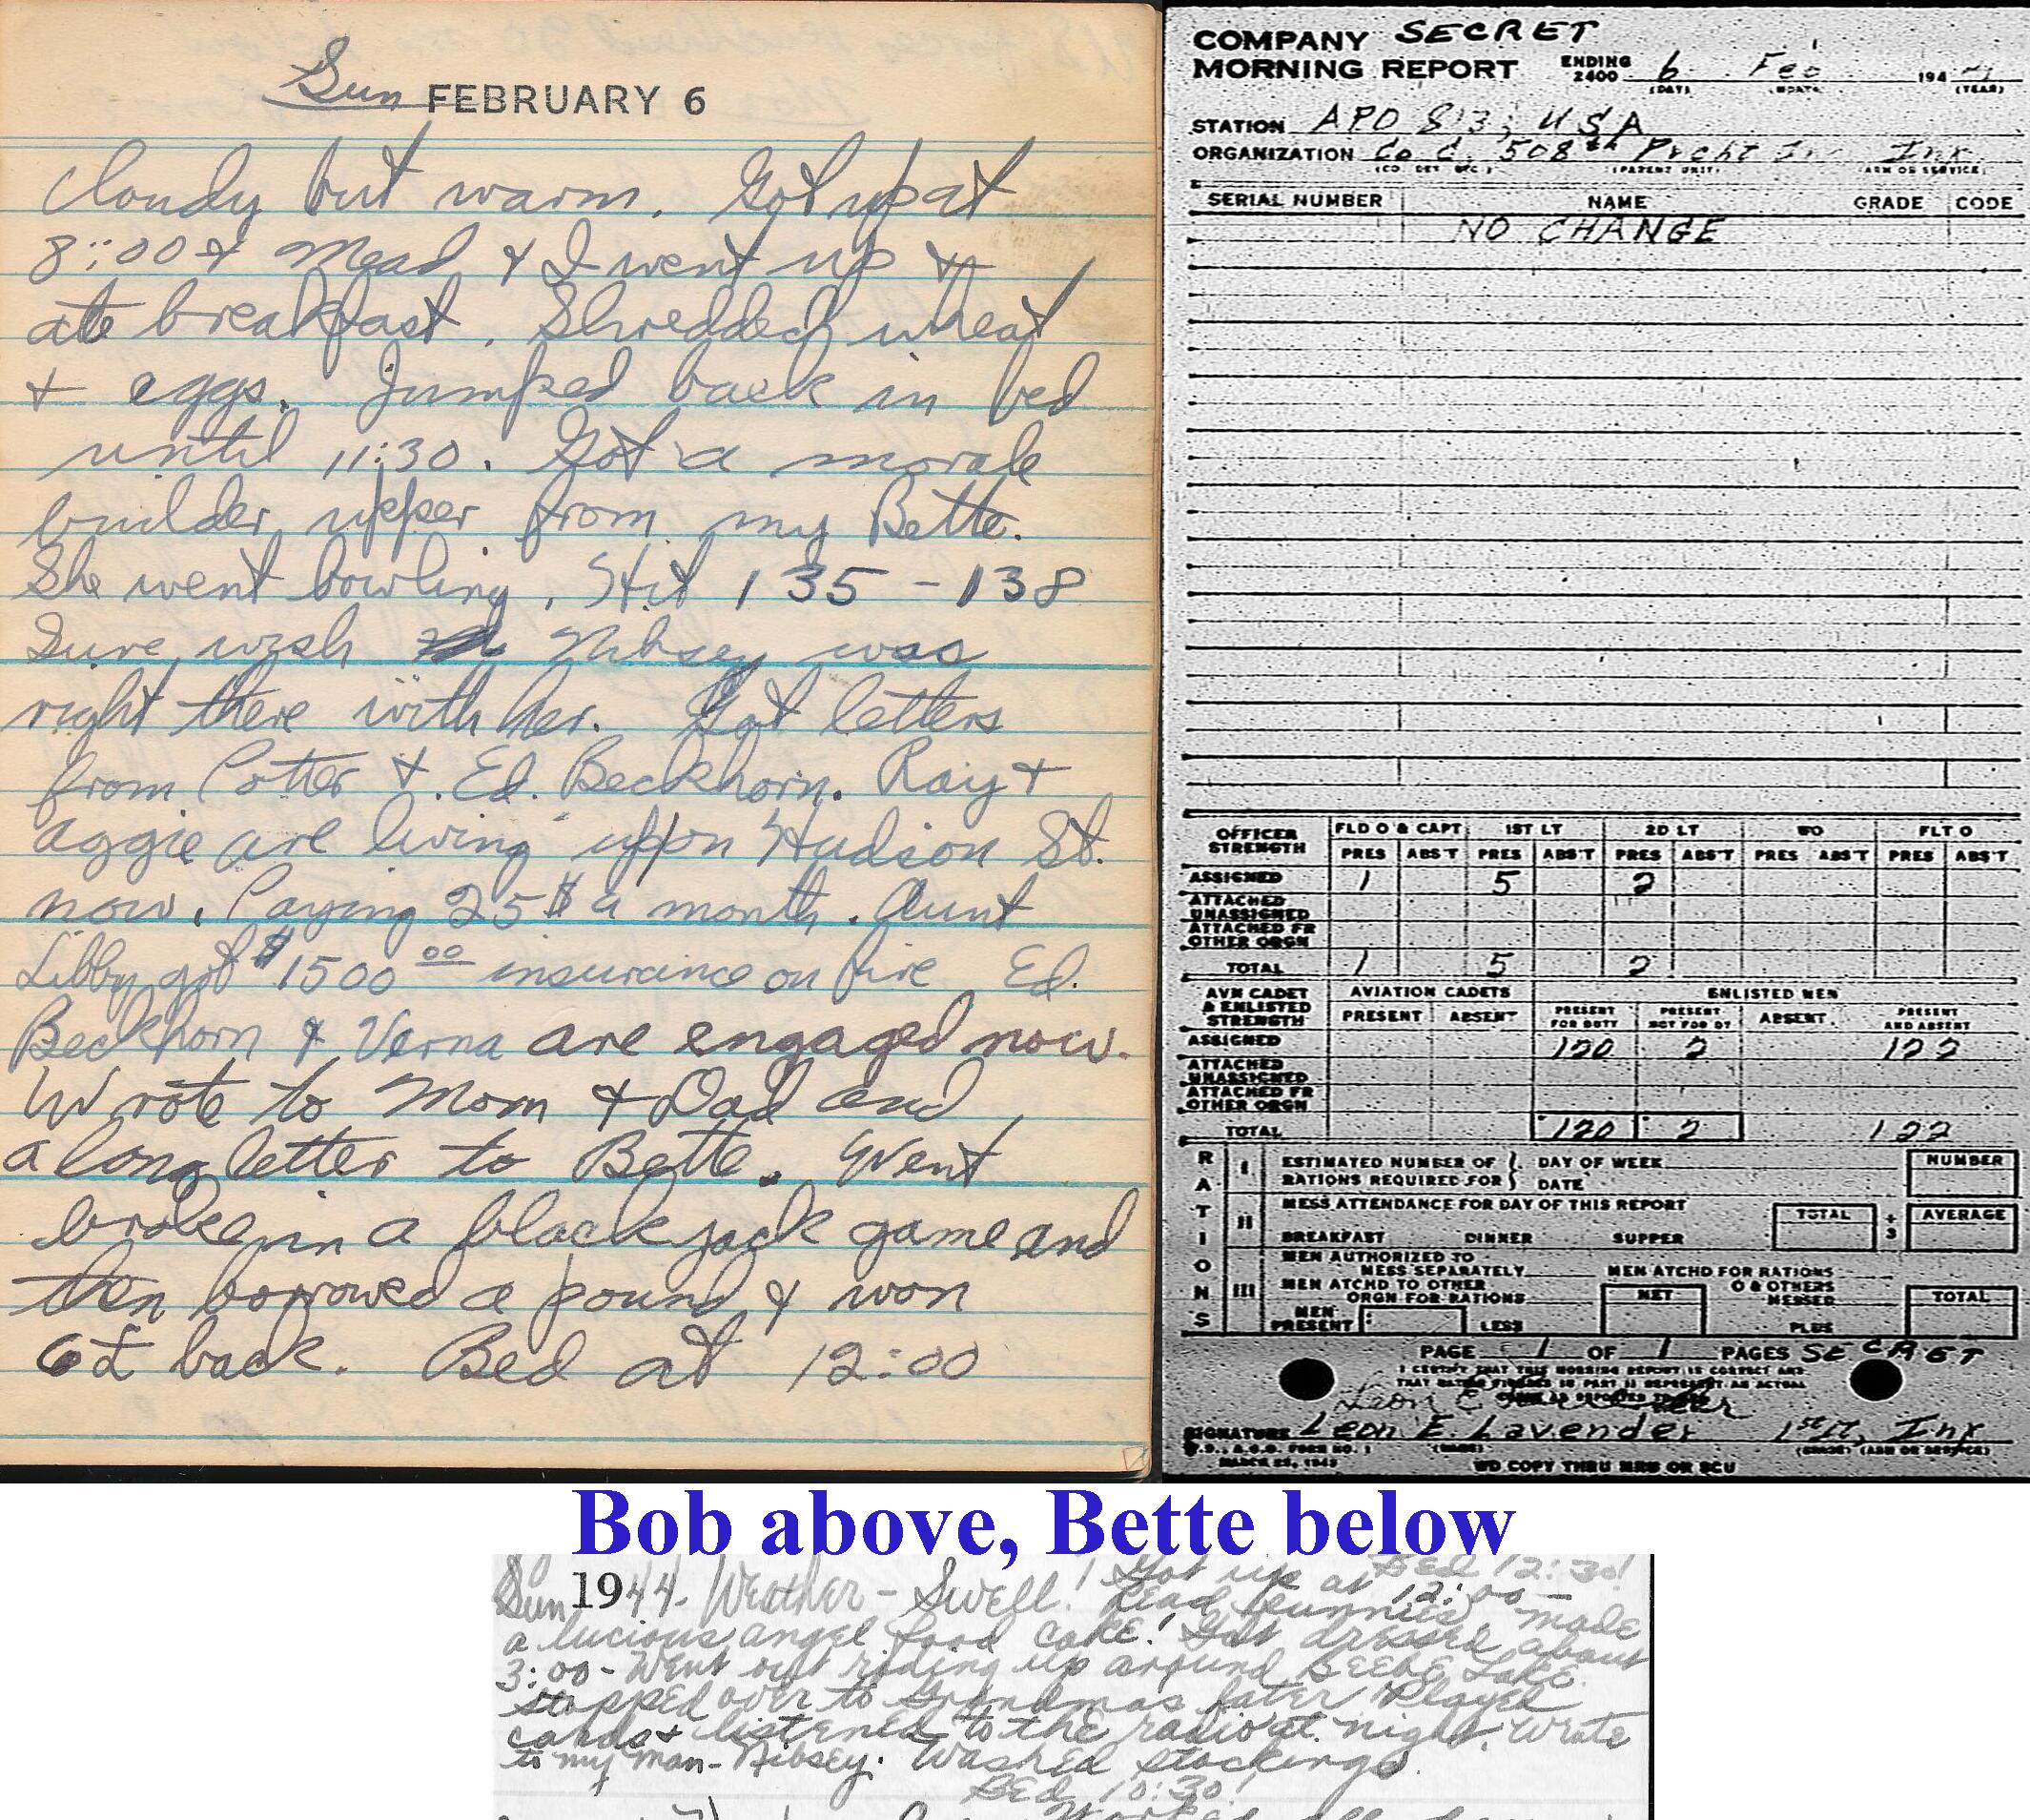 Sun FEBRUARY 6
Cloudy but warm. Got up at
8:00 & Mead & I went up &
ate breakfast. Shredded wheat
& eggs. Jumped back in bed
until 11:30. Got a morale
builder upper from my Bette.
She went bowling. Hit 135 - 138
Sure wish Nibsey was
right there with her. Got letters
from Potter & Ed. Beckhorn. Ray &
Aggie are living up on Hudson St.
now. Paying 25$ a month. Aunt
Libby got $1500 00 insurance on fire Ed.
Beckhorn & Verna are engaged now.
Wrote to Mom & Dad and
a long letter to Bette. Went
broke in a black jack game and
then borrowed a pound & won
6£ back. Bed at 12:00
COMPANY SECRET
MORNING REPORT ENDING 2400 6 Feb 194
(DAY) (MONTH) (YEAR)
STATION APO 813, USA
ORGANIZATION Co C, 508th Prcht In Inf
(CO. DET. ETC.) (PARENT UNIT) (ARM OR SERVICE)
SERIAL NUMBER NAME GRADE CODE
NO CHANGE
OFFICER STRENGTH FLD O & CAPT 1ST LT 2D LT WO FLT O
PRES ABS'T PRES ABS'T PRES ABS'T PRES ABS'T PRES ABS'T
ASSIGNED 1 5 2
ATTACHED UNASSIGNED
ATTACHED FR OTHER ORGN
TOTAL 1 5 2
AVN CADET & ENLISTED STRENGTH AVIATION CADETS ENLISTED MEN
PRESENT ABSENT PRESENT FOR DUTY PRESENT NOT FOR DY ABSENT PRESENT AND ABSENT
ASSIGNED 120 2 122
ATTACHED UNASSIGNED
ATTACHED FR OTHER ORGN
TOTAL 120 2 122
RATIONS
I ESTIMATED NUMBER OF RATIONS REQUIRED FOR DAY OF WEEK DATE NUMBER
II MESS ATTENDANCE FOR DAY OF THIS REPORT TOTAL ÷ 3 AVERAGE
BREAKFAST DINNER SUPPER
III MEN AUTHORIZED TO MESS SEPARATELY MEN ATCHD FOR RATIONS
MEN ATCHD TO OTHER ORGN FOR RATIONS NET O & OTHERS MESSED TOTAL
MEN PRESENT LESS PLUS
PAGE 1 OF 1 PAGES SECRET
I CERTIFY THAT THIS MORNING REPORT IS CORRECT AND
Leon E
SIGNATURE Leon E. Lavender 1st Lt, Inf
W.D., A.G.O. FORM NO. 1 (NAME) (GRADE) (ARM OR SERVICE)
MARCH 25, 1943 WD COPY THRU MRU OR SCU
Bob above, Bette below
Bed 12:30!
Sun 1944. Weather - Swell! Got up at 12:00 -
Read funnies, made
a lucious angel food cake! Got dressed about
3:00 - Went out riding up around Beebe Lake.
Stopped over to Grandmas later Played
cards & listened to the radio at night. Wrote
to my man - Nibsey. Washed stockings.
BEd 10:30!